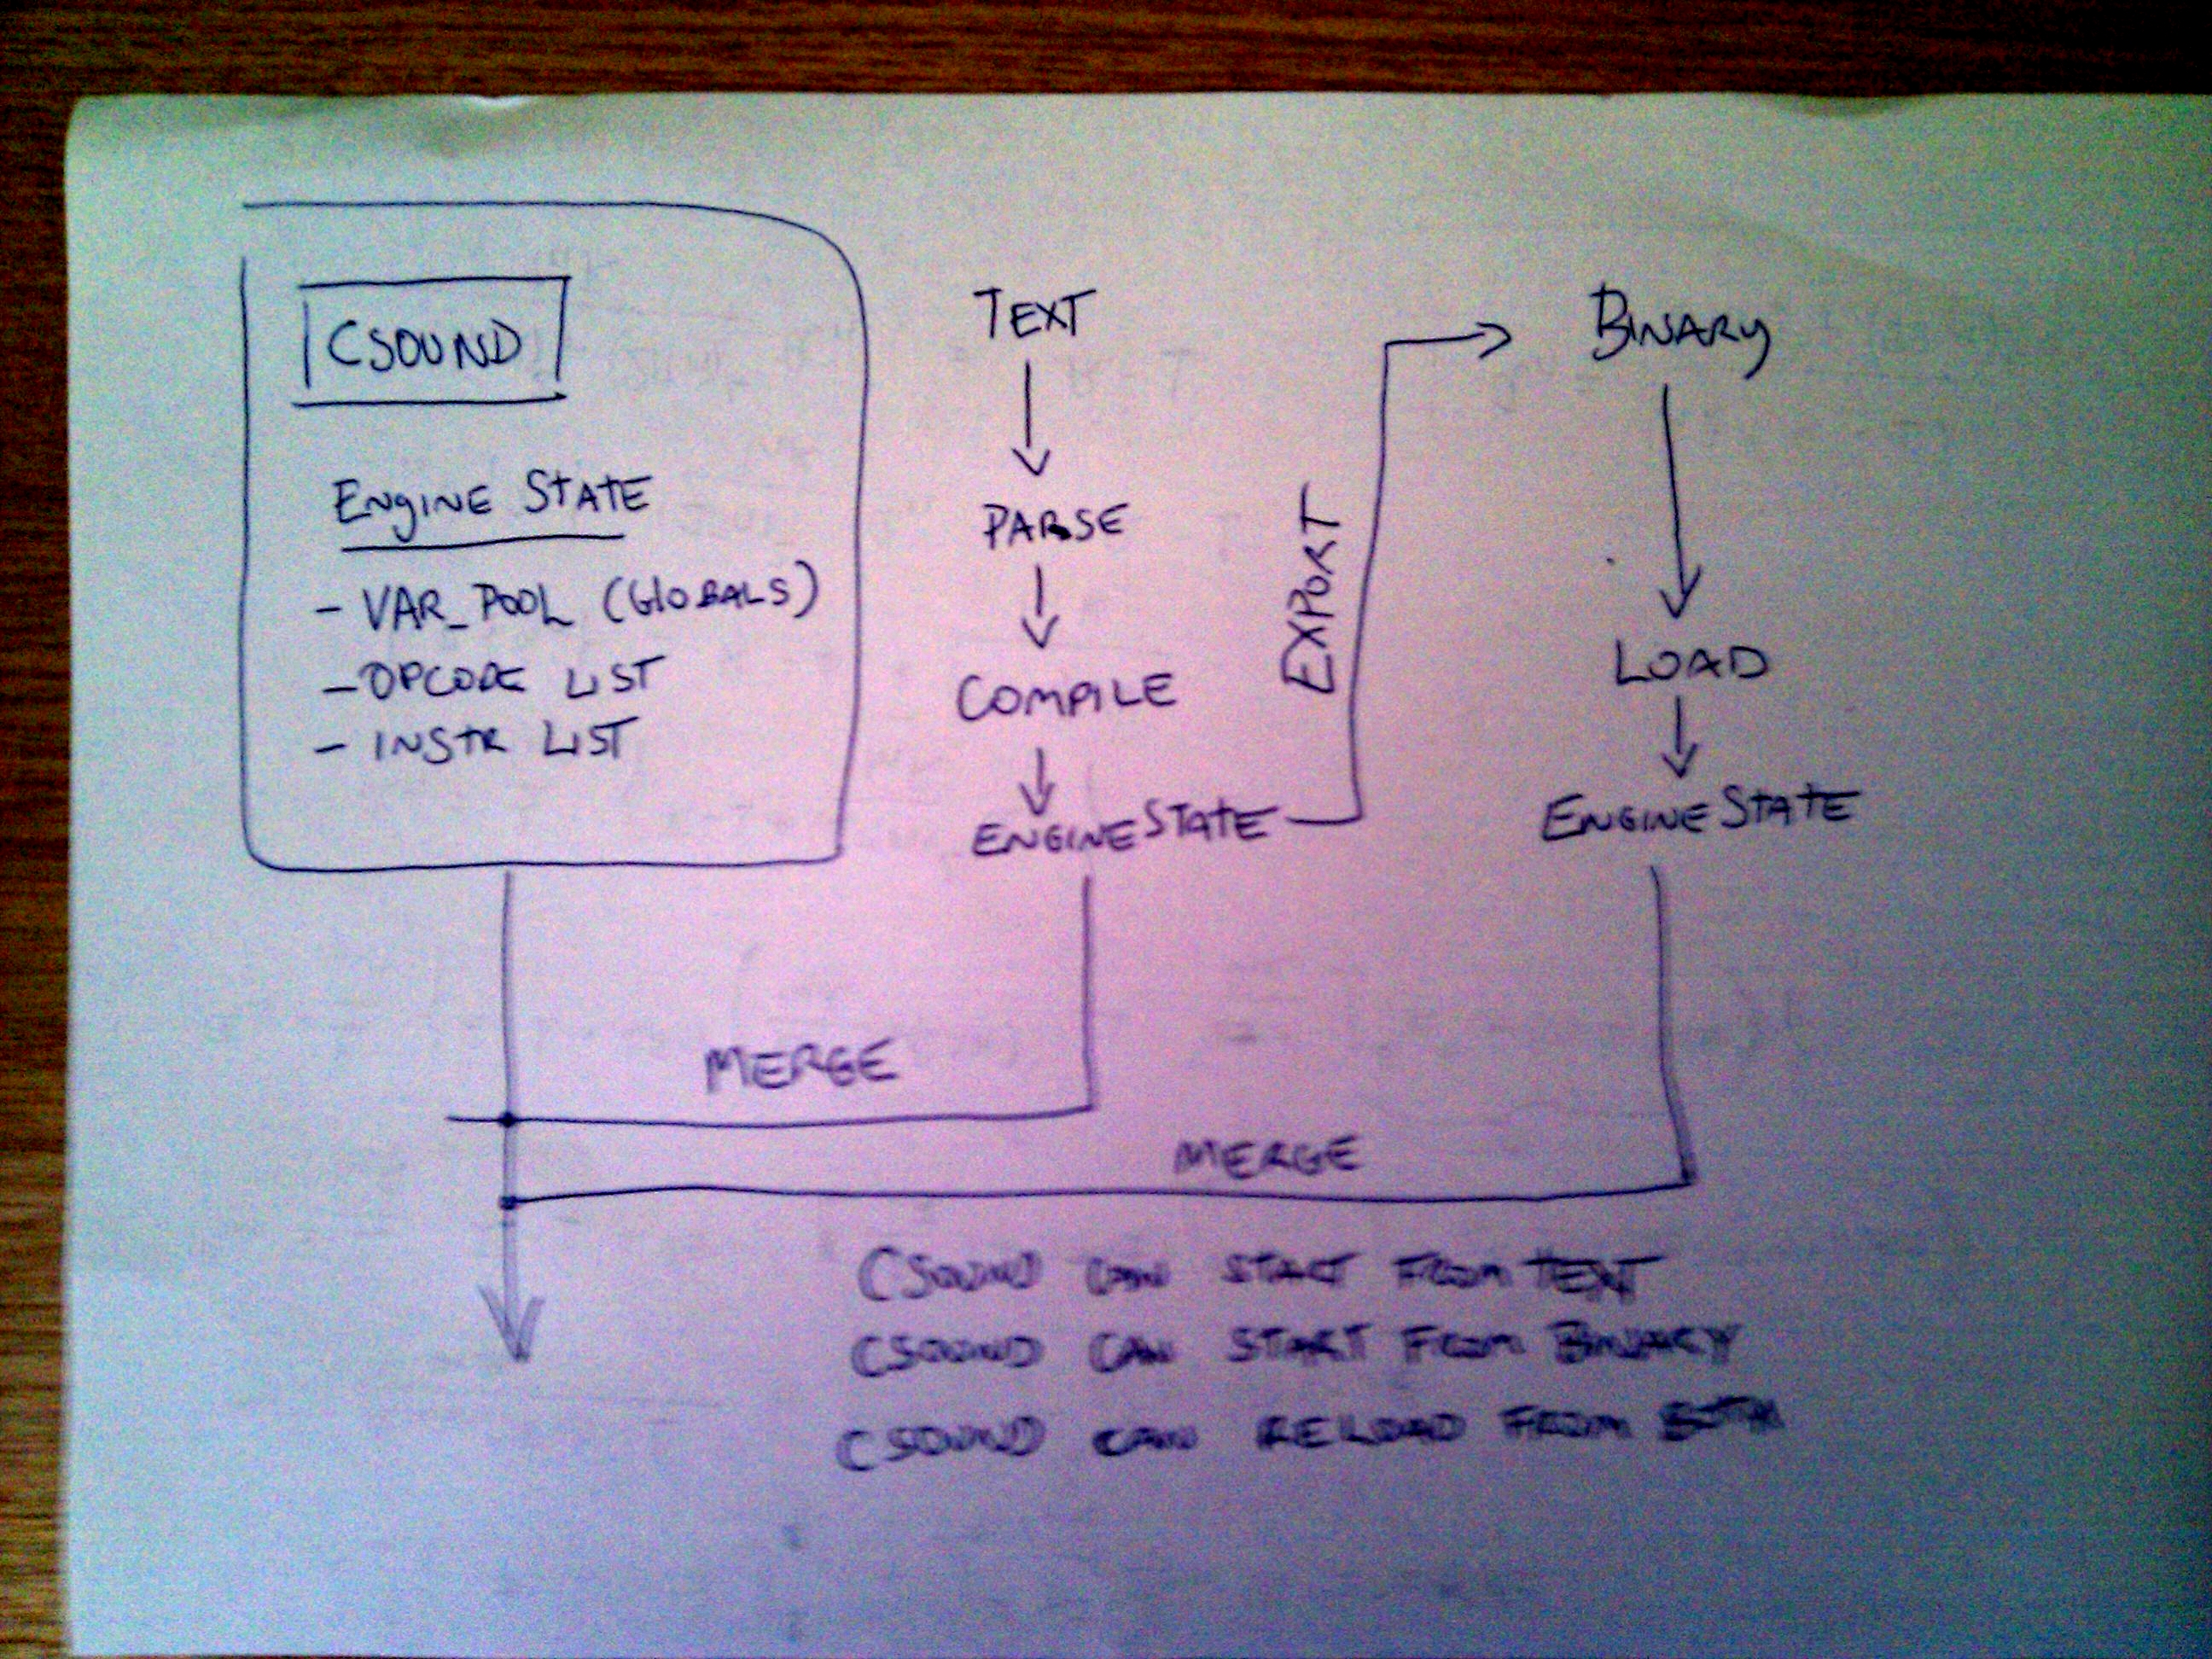 CSOUND
ENGINE STATE
- VAR_POOL (GLOBALS)
- OPCODE LIST
- INSTR LIST
TEXT
PARSE
COMPILE
ENGINE STATE
EXPORT
BINARY
LOAD
ENGINE STATE
MERGE
MERGE
CSOUND CAN START FROM TEXT
CSOUND CAN START FROM BINARY
CSOUND CAN RELOAD FROM BOTH